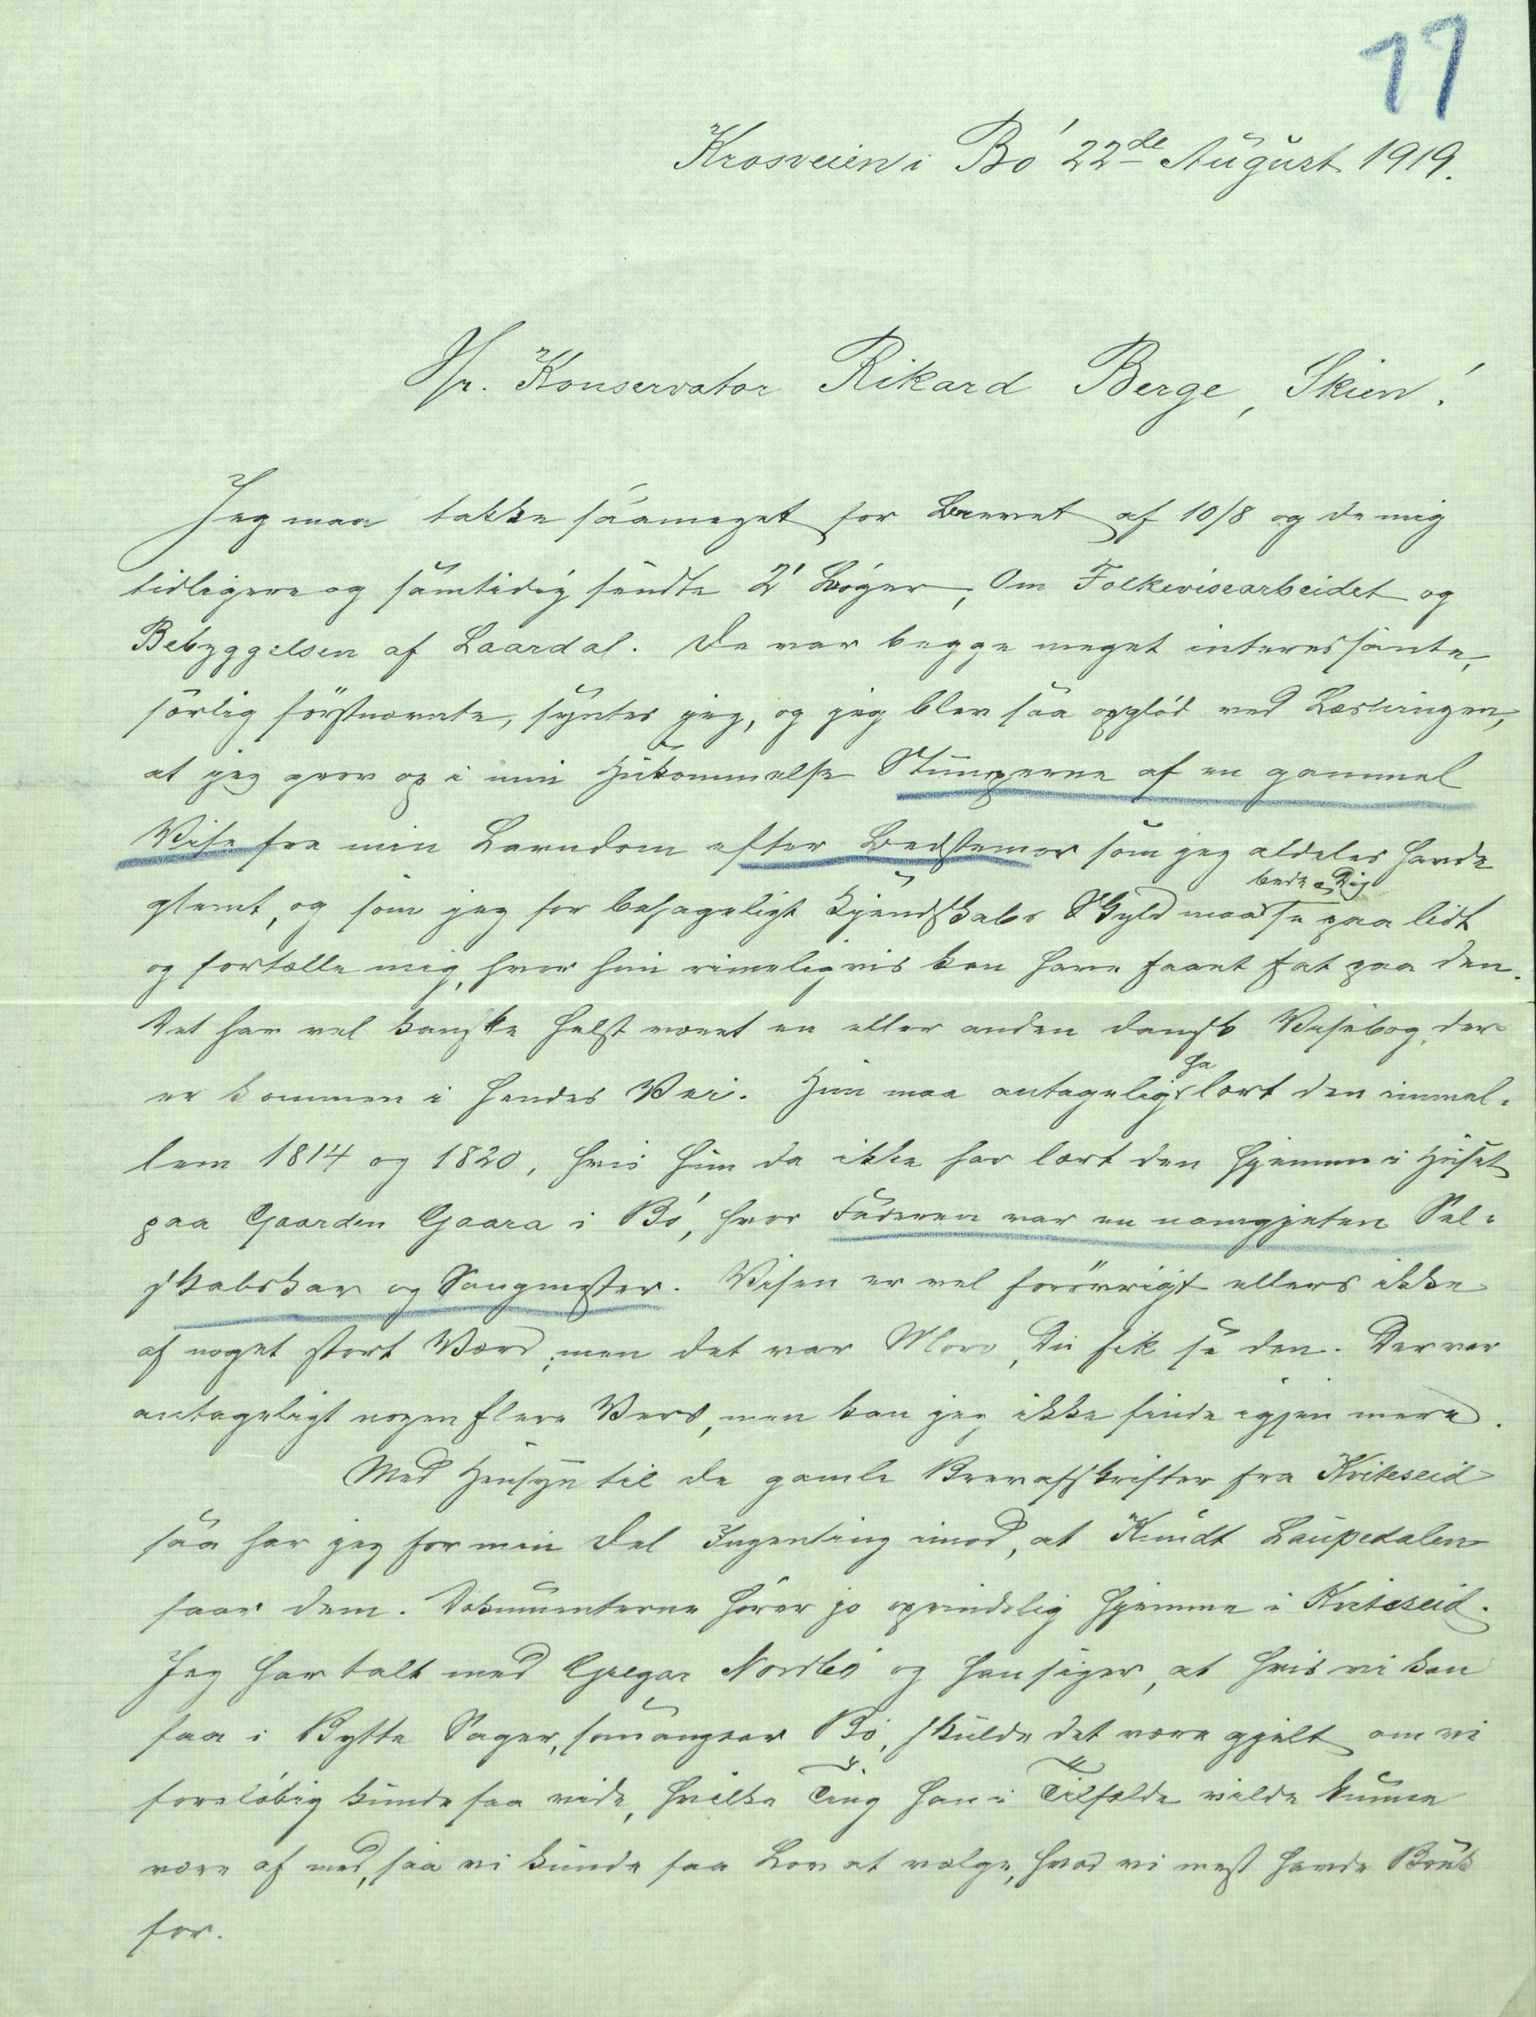 17
Krosveien i Bø 22de August 1919.
Hr. Konservator Rikard Berge, Skien!
Jeg maa takke saameget for Brevet af 10/8 og de mig
tidligere og samtidig sendte 2 Bøger, Om Folkevisearbeidet og
Bebyggelsen af Laardal. De var begge meget interessante,
særlig førstnævnte, syntes jeg, og jeg blev saa opglød ved Læsningen,
at jeg grov op i min Hukommelse Stumperne af en gammel
Vise fra min Barndom efter Bedstemor som jeg aldeles havde
glemt, og som jeg for behageligt Kjendskabs Skyld maa bede Dig se paa lidt
og fortælle mig, hvor hun rimeligvis kan have faaet fat paa den.
Det har vel kanske helst været en eller anden dansk Visebog, der
er kommen i hendes Vei. Hun maa antagelig ha lært den immel-
lem 1814 og 1820, hvis hun da ikke har lært den hjemme i Huset
paa Gaarden Gaara i Bø, hvor Faderen var en navngjeten Sel-
skabskar og Sangmester. Visen er vel forøvrigt ellers ikke
af noget stort Værd, men det var Moro, Du fik se den. Der var
antageligt nogen flere Vers, men kan jeg ikke finde igjen mere.
Med Hensyn til de gamle Brevafskrifter fra Kviteseid
saa har jeg for min Del Ingenting imod, at Knudt Laupedalen
faar dem. Dokumenterne hører jo oprindelig hjemme i Kviteseid.
Jeg har talt med Gregar Nordbø og han siger, at hvis vi kan
faa i Bytte Sager, som angaar Bø, skulde det være gjilt om vi
foreløbig kunde faa vide, hvilke Ting han i Tilfælde vilde kunne
være af med, saa vi kunde faa Lov at vælge, hvad vi mest havde Bruk
for.